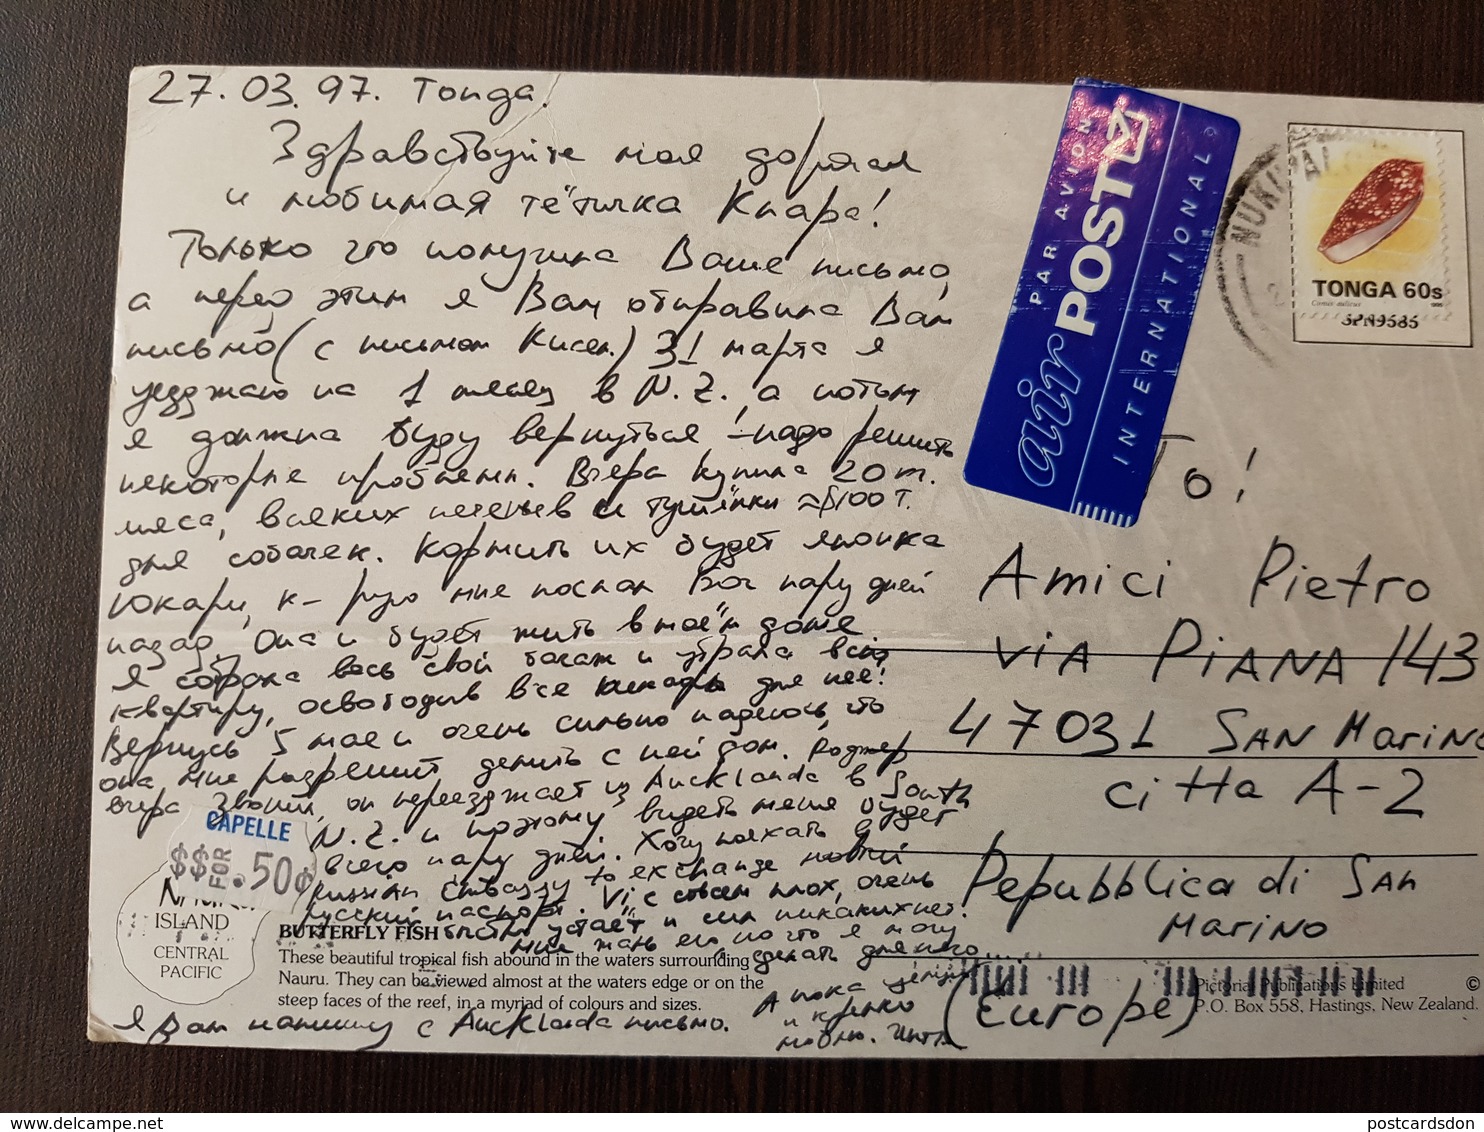 27.03.97. Tonga.
Здравствуйте моя дорогая
и любимая тётичка Клара!
Только что получила Ваше письмо,
а перед этим я Вам отправила Вам
письмо (с письмом Кисел.) 31 марта я
уезджаю на 1 месяц в N.Z., а потом
я должна буду вернуться! - надо решить
некоторые проблемы. Вчера купила 20 т.
мяса, всяких печеньев и тушёнки ≈ $100 т.
для собачек. Кормить их будет японка
Юкари, к-рую мне послал Бог пару дней
назад. Она и будет жить в моём доме
Я собрала весь свой багаж и убрала всю
квартиру, освободив все для неё!
Вернусь 5 мая и очень сильно надеюсь, что
она мне разрешит делить с ней дом. Роджер
вчера звонил, он переезджает из Aucklanda в South
N.Z. и поэтому видеть меня будет
всего пару дней. Хочу поехать в
russian Embassy to exchange
русский паспорт. Vic совсем плох, очень
быстро устаёт и сил никаких нет.
Мне жаль его но что я могу
сделать для него.....
А пока
и крепко
люблю.
Я Вам напишу с Aucklanda письмо.
PAR AVION
air POST
INTERNATIONAL
NUKU'AL
TONGA 60s
Conus aulicus
1996
SPN9585
To!
Amici Pietro
via PIANA 143
47031 SAN MARINO
citta A-2
Repubblica di SAN
MARINO
(Europe)
CAPELLE
$$$ FOR .50¢
ISLAND
CENTRAL
PACIFIC
BUTTERFLY FISH
These beautiful tropical fish abound in the waters surrounding
Nauru. They can be viewed almost at the waters edge or on the
steep faces of the reef, in a myriad of colours and sizes.
Pictorial Publications Limited ©
P.O. Box 558, Hastings, New Zealand.
delcampe.net
postcardsdon